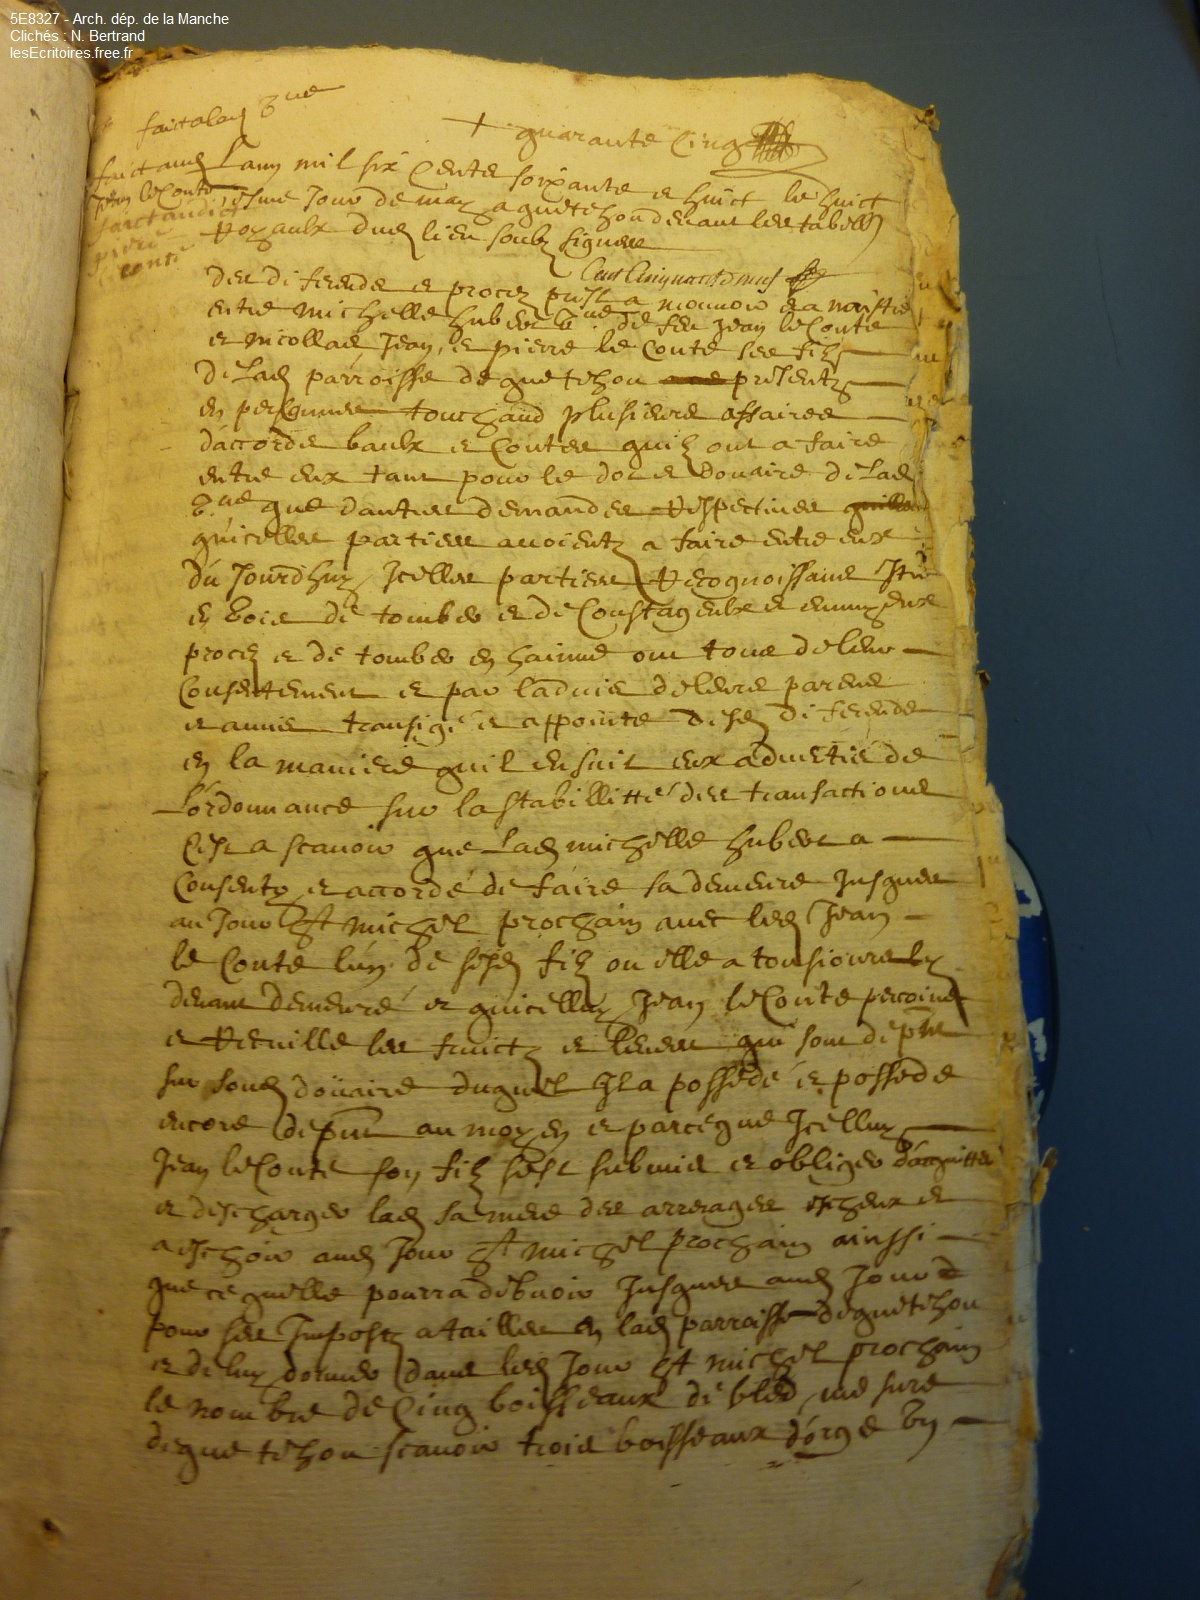 5E8327 - Arch. dép. de la Manche
Clichés : N. Bertrand
lesEcritoires.free.fr
faict a lad vve
+ quarante Cinq
faict aud
Jean leConte
faict audict
piere
Conte
Lann mil six Cents soixante et huict le huict
iesme Jour de may a quetehou devant les tabell
Royaulx dud lieu soubz signes
des diferends et procez pust a mouvoir et a naistre
entre michelle hubert vve de feu Jean leConte
et nicollas Jean, et pierre le Conte ses filz
de Lad parroisse de quetehou presentz
en personnes touchand plusieurs affaires
daccords baulx et Contes quilz ont a faire
entre eux tant pour le dot et douaire de Lad
vve que dautres demandes Respectives
quicelles parties avoientz a faire entre eux
du Jourdhuy Icelles parties Recognoissant
en voie de tomber et de Constageulx et ennuyeux
procez et de tomber en hainne ont tous de leur
Consentement et par ladvis de leurs parens
et amis transigé et appointe desd diferends
en la maniere quil ensuit eux advertis de
Lordonnance sur la stabillitté des transactions
Cest a scavoir que Lad michelle hubert a
Consenty et accordé de faire sa demeure Jusques
au Jour St michel prochain avec led Jean
le Conte lun de sesd filz ou elle a tousiours cy
devant demeuré et quicelluy Jean leConte percoive
et Recuille les fruictz et levees qui sont de pnt
sur soud doüaire duquel Il a possédé et possede
encore de pnt au moyen et parceque Icelluy
Jean leConte son filz sest submis et obliger dacquitter
et descharger lad sa mere des arrerages escheux et
a eschoir aud Jour St michel prochain ainssi
que ce quelle pourra debvoir Jusques aud Jour
pour ses Impostz a tailles en lad parroisse de quetehou
et de luy donner dans led Jour St michel prochain
le nombre de Cinq boisseaux de bled mesure
de quetehou scavoir trois boisseaux dorge un